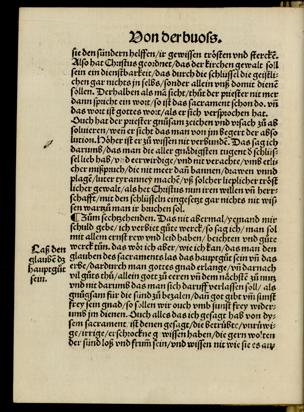 Von der buosz.
sie den sündern helffen/ir gewissen trösten vnd stercke.
Also hat Christus geordnet/das der kirchen gewalt soll
sein ein dienstbarkeit/das durch die schlüssel die geistli-
chen gar nichts in selbs/sonder allein vnß domit dienē
sollen. Derhalben als mā sicht/thůt der priester nit mer
dann spricht ein wort/so ist das sacrament schon do. vñ
das wort ist gottes wort/als er sich versprochen hat.
Ouch hat der priester gnůgsam zeichen vnd vrsach zů ab
soluieren/wen er sicht das man von jm begert der abso-
lution. Höher ist er zů wissen nit verbunde. Das sag ich
darumb/das man die aller gnädigisten tugent d schlüs-
sel lieb hab/vnd eerwirdige/vnd nit verachte/vmb etli-
cher mißpruch/die nit meer dañ bannen/drawen vnnd
plage/luter tyranney machē/vß solcher lieplicher tröst
licher gewalt/als het Christus nun iren willen vñ herr-
schafft/mit den schlüsseln eingesetzt gar nichts nit wis-
sen warzů man ir bruchen sol.
¶ Zům sechtzehenden. Das nit abermal/yemand mir
schuld gebe/ich verbiete gůte werck/so sag ich/man sol
mit allem ernst rew vnd leid haben/beichten vnd gůte
werck tůn. das wör ich aber/wie ich kan/das man den
glauben des sacraments las das hauptgůt sein vñ das
erbe/dardurch man gottes gnad erlange/vñ darnach
vil gůts thů/allein gott zů eeren vñ dem nächstē zů nutz
vnd nit darumb das man sich daruff verlassen soll/als
gnůgsam für die sünd zů bezalen/dan got gibt vñ sunst
frey sein gnad/so sollen wir ouch vmb sunst frey wider-
umb jm dienen. Ouch alles das ich gesagt hab von dy-
sem sacrament. ist denen gesagt/die betrübte/vnrüwi-
ge/irrige/erschrockne gwissen haben/die gern wolten
der sünd loß vnd frum sein/vnd wissen nit wie sie es an
Laß den
glaubē dz
hauptgůt
sein.